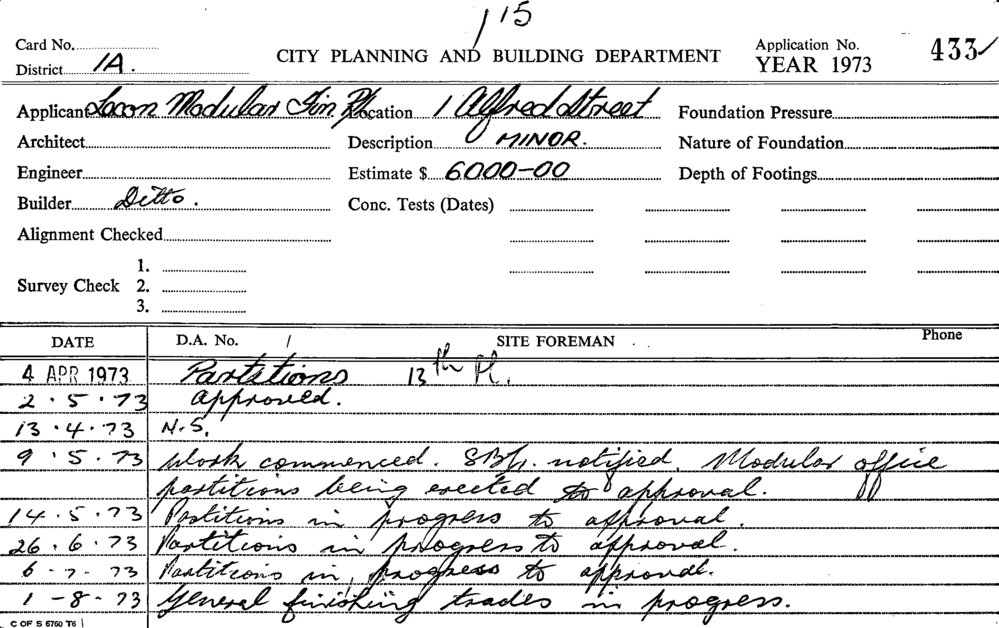 115
Card No.
CITY PLANNING AND BUILDING DEPARTMENT
Application No. 433
District 1A.
YEAR 1973
Applicant Modular Location 1 Alfred Street Foundation Pressure
Architect Description MINOR. Nature of Foundation
Engineer Estimate $ 6000-00 Depth of Footings
Builder Ditto. Conc. Tests (Dates)
Alignment Checked
1.
Survey Check 2.
3.
DATE D.A. No. / SITE FOREMAN Phone
4 APR 1973 Partitions 13th Fl.
2.5.73 approved.
13.4.73 N.S.
9.5.73 Work commenced. notified. Modular office
partitions being erected to approval.
14.5.73 Partitions in progress to approval.
26.6.73 Partitions in progress to approval.
6-7-73 Partitions in progress to approval.
1-8-73 General finishing trades in progress.
C OF S 6760 T6